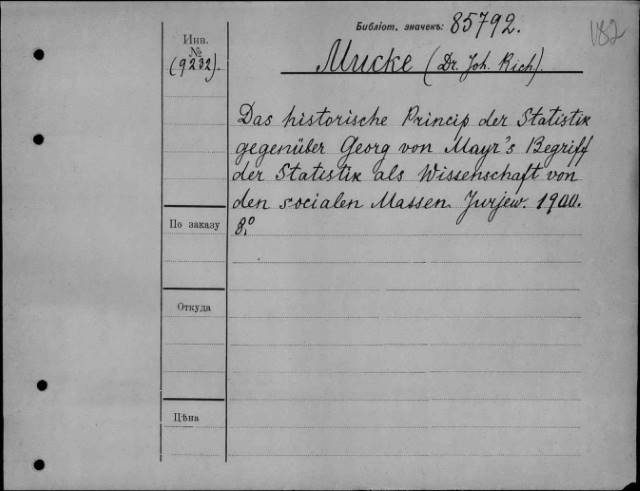 Библіот. значекъ: 85792.
V82
Инв.
№
(9232).
Mucke (Dr. Joh. Rich).
Das historische Princip der Statistik
gegenüber Georg von Mayr's Begriff
der Statistik als Wissenschaft von
den socialen Massen. Jurjew. 1900.
8.°
По заказу
Откуда
Цѣна